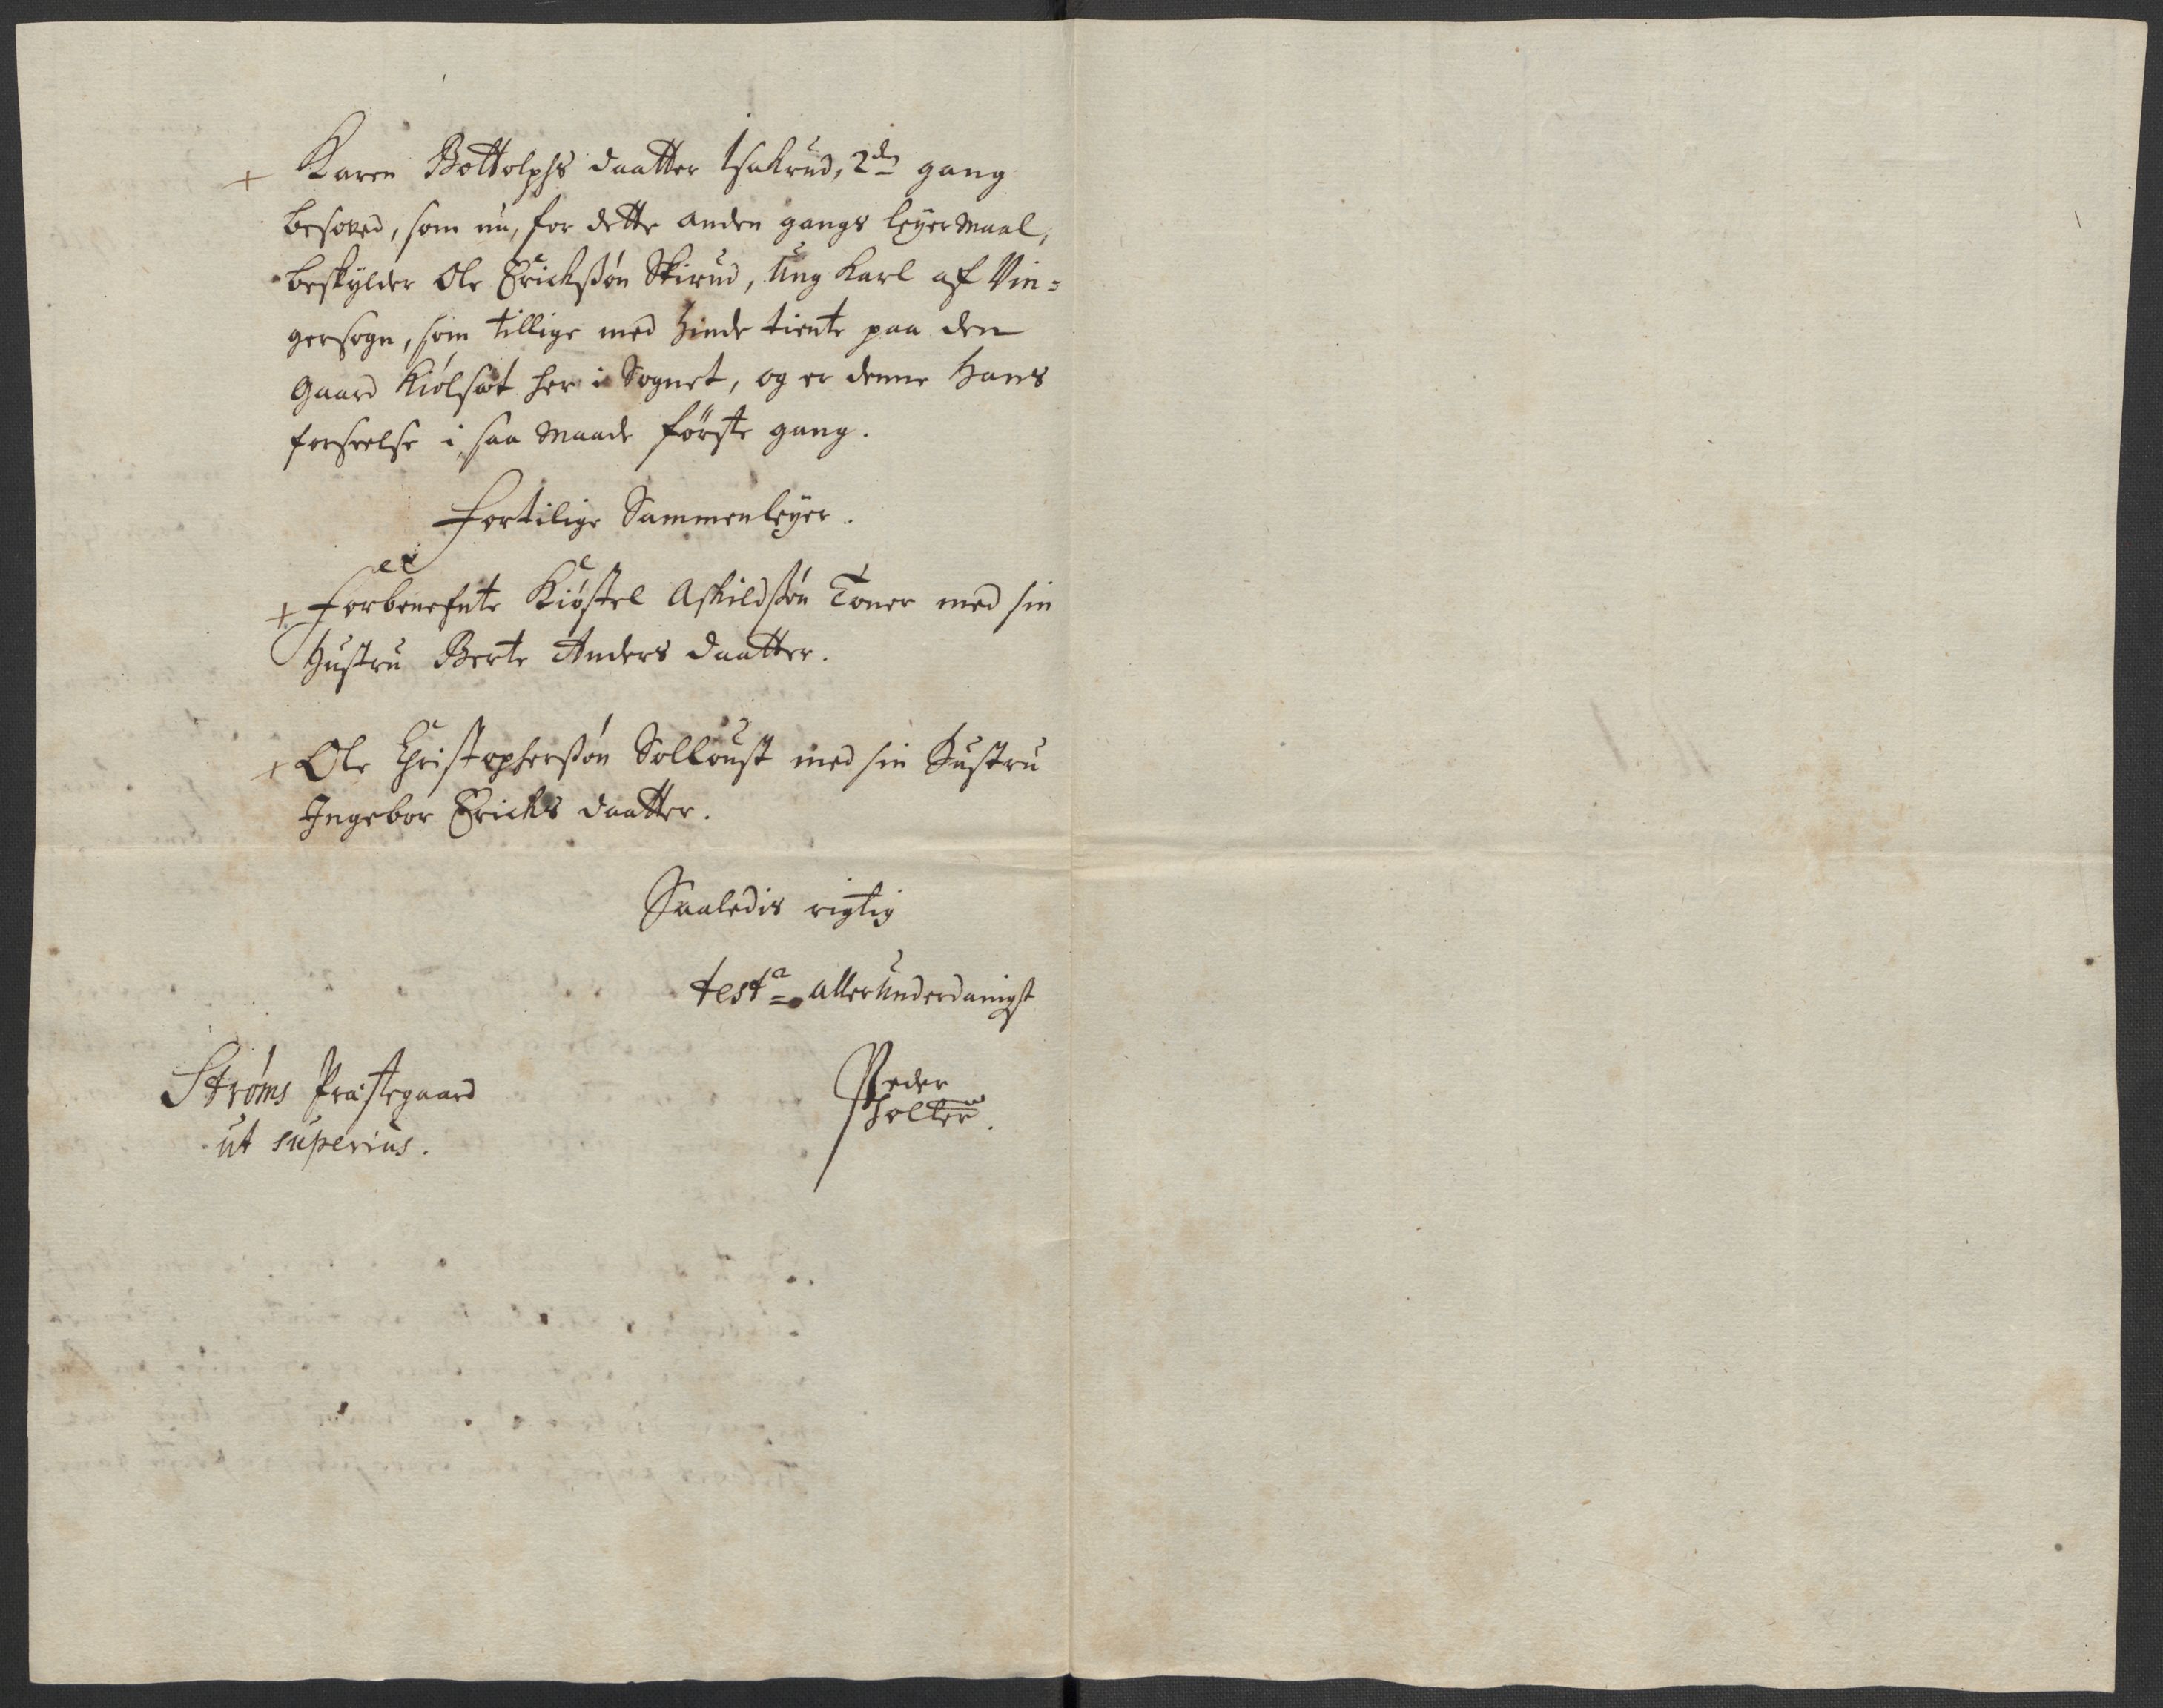 + Karen Bottolphs daatter Isakrud, 2den gang
besoved, som nu, for dette anden gangs leyermaal,
beskylder Ole Erichssøn Skirud, Ung Karl af Vin=
gersogn, som tillige med hende tiente paa den
gaard Kiølsæt her i Sognet, og er denne hans
forseelse i saa maade første gang.
Fortilige Sammenleyer.
+ Forbenefnte Kiøstel Askildssøn Toner med sin
Hustru Berte Anders daatter.
+ Ole Christopherssøn Solloust med sin Hustru
Ingebor Erichs daatter.
Saaledis rigtig
testr allerunderdanigst
Strøms Præstegaard
ut superius.
Peder
Holter.